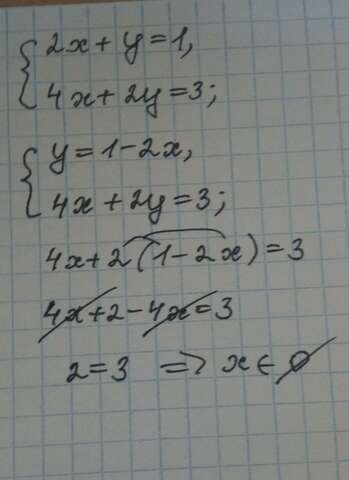 2x + y = 1,
4x + 2y = 3;
y = 1 - 2x,
4x + 2y = 3;
4x + 2(1 - 2x) = 3
4x + 2 - 4x = 3
2 = 3 => x ∈ ∅